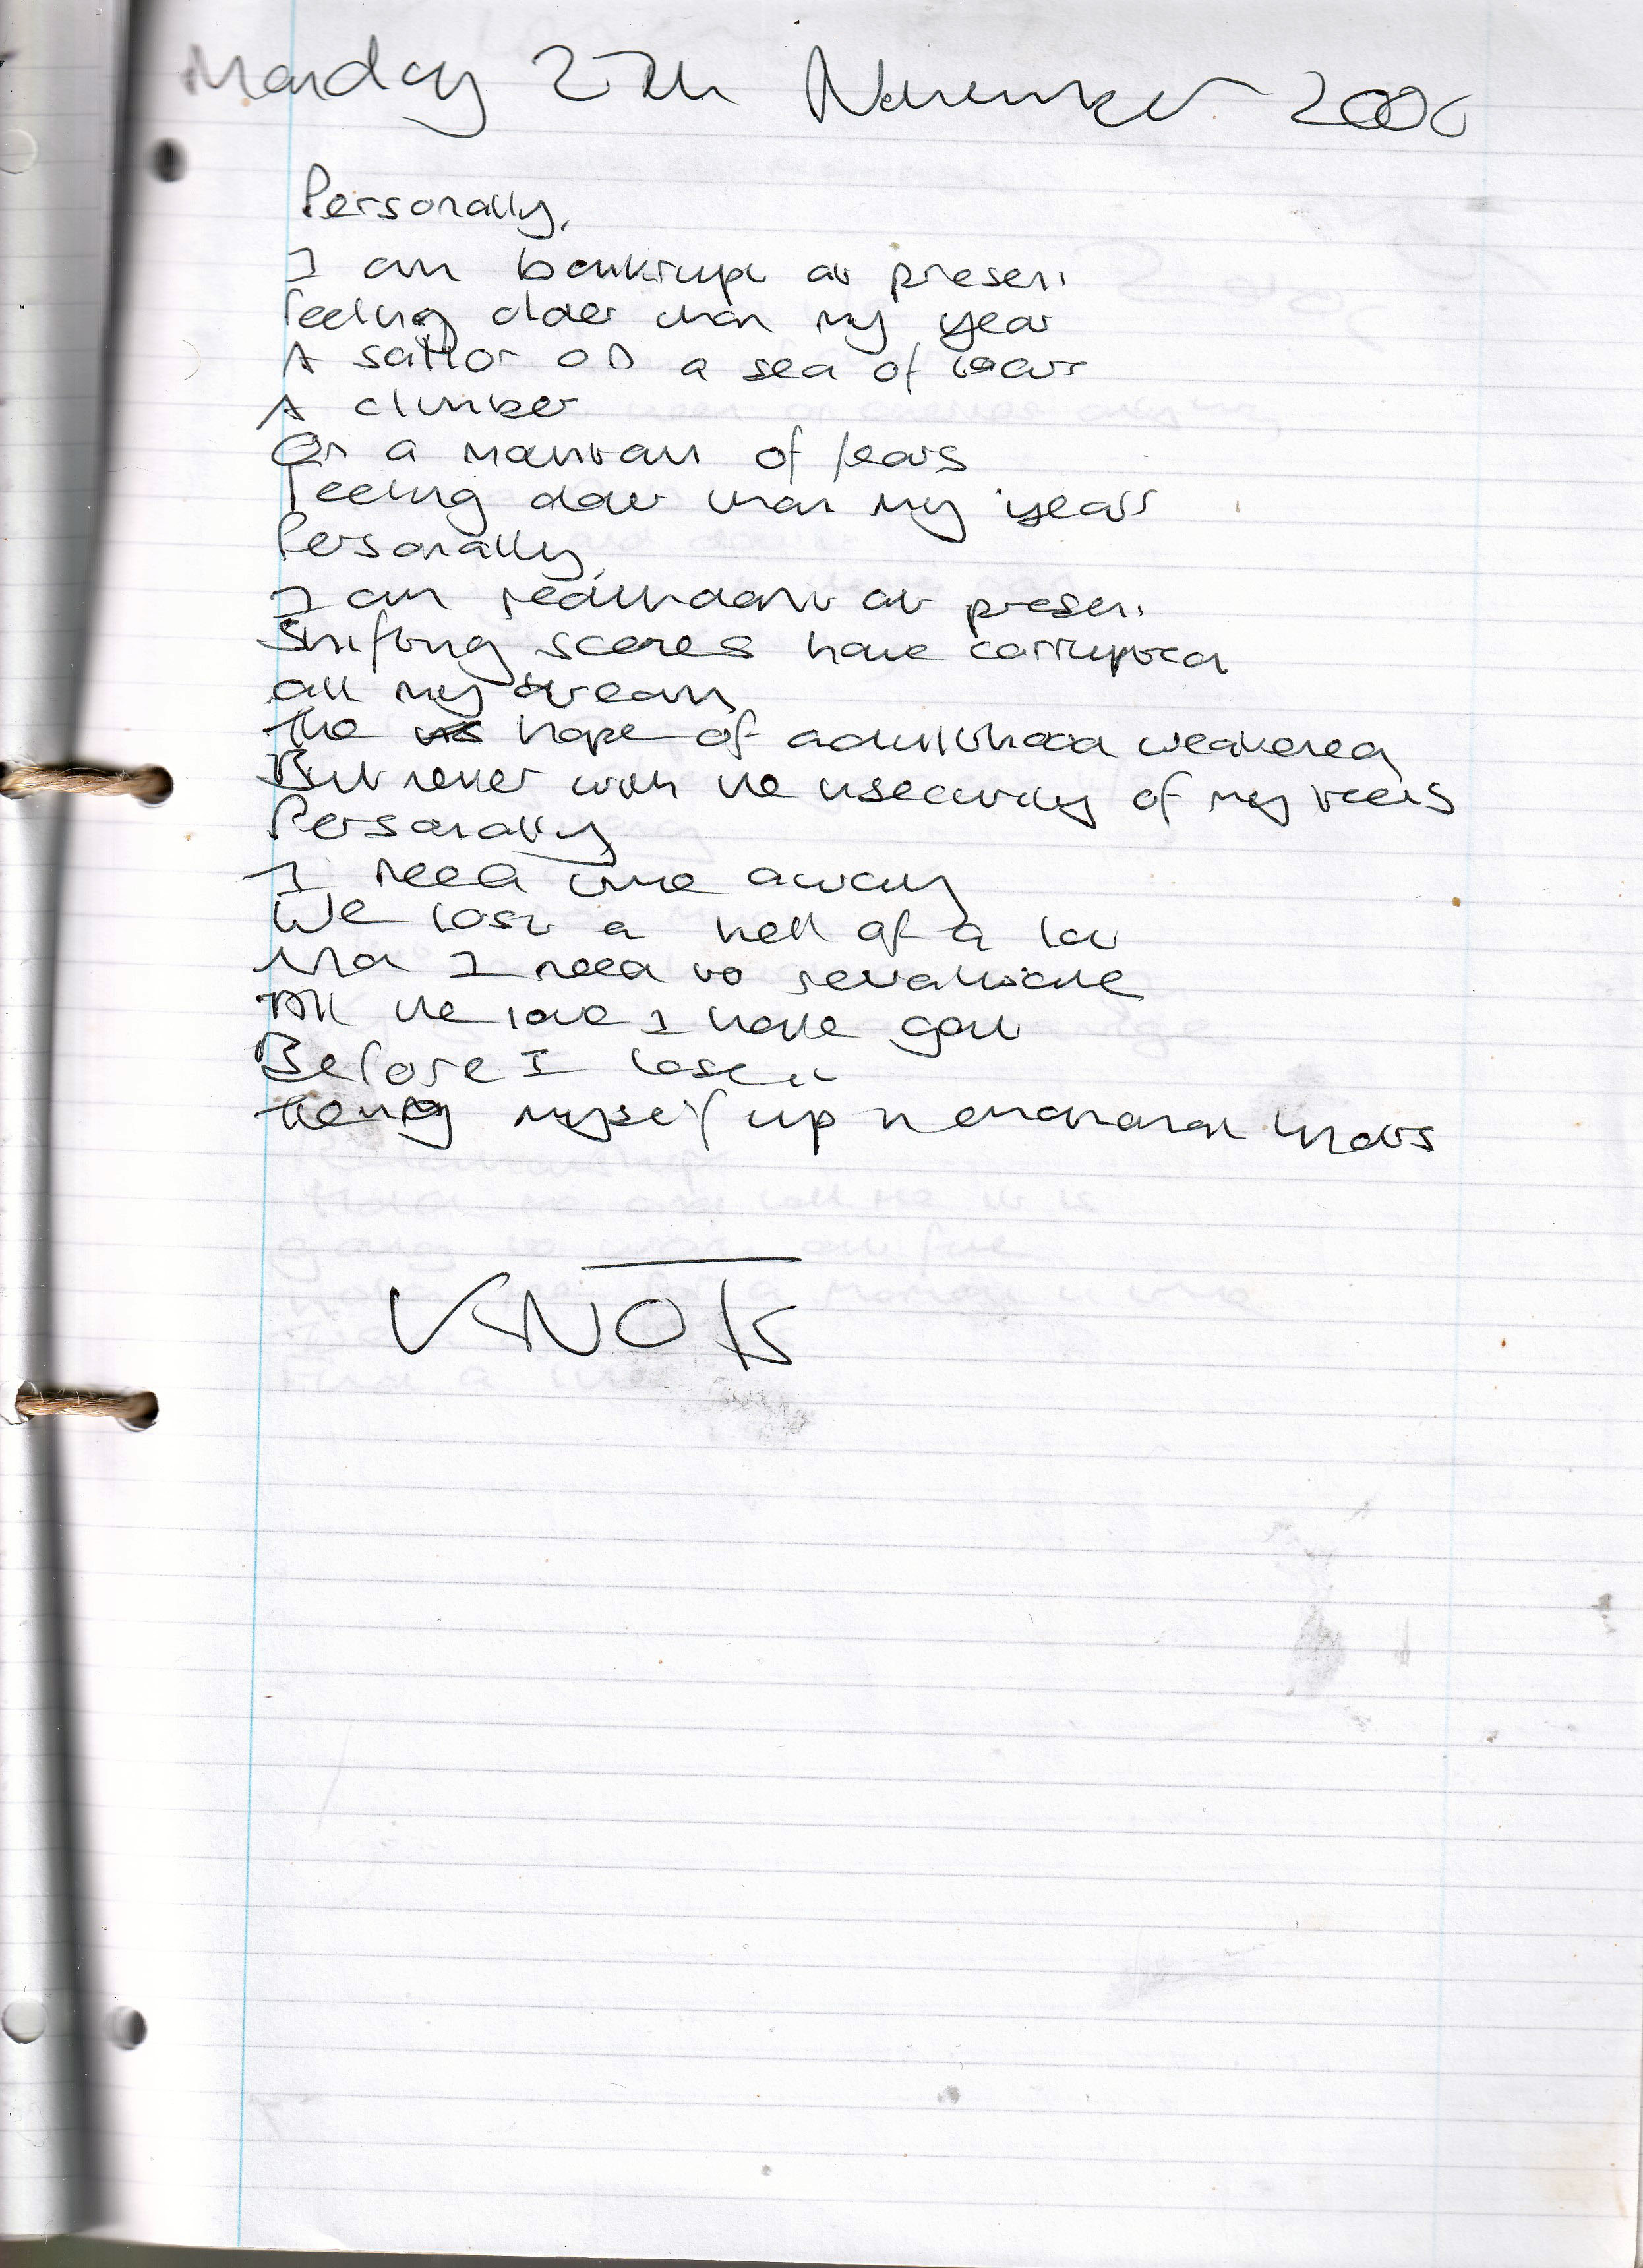 Monday 27th November 2006
Personally,
I am bankrupt at present
Feeling older than my year
A sailor on a sea of tears
A climber
On a mountain of fears
Feeling older than my years
Personally,
I am redundant at present
Shifting scenes have corrupted
all my dream
The hope of adulthood weakened
But never with the insecurity of my teens
Personally
I need time away
We lost a hell of a lot
And I need to revalidate
All the love I have got
Before I lose it
Tieing myself up in emotional knots
KNOTS